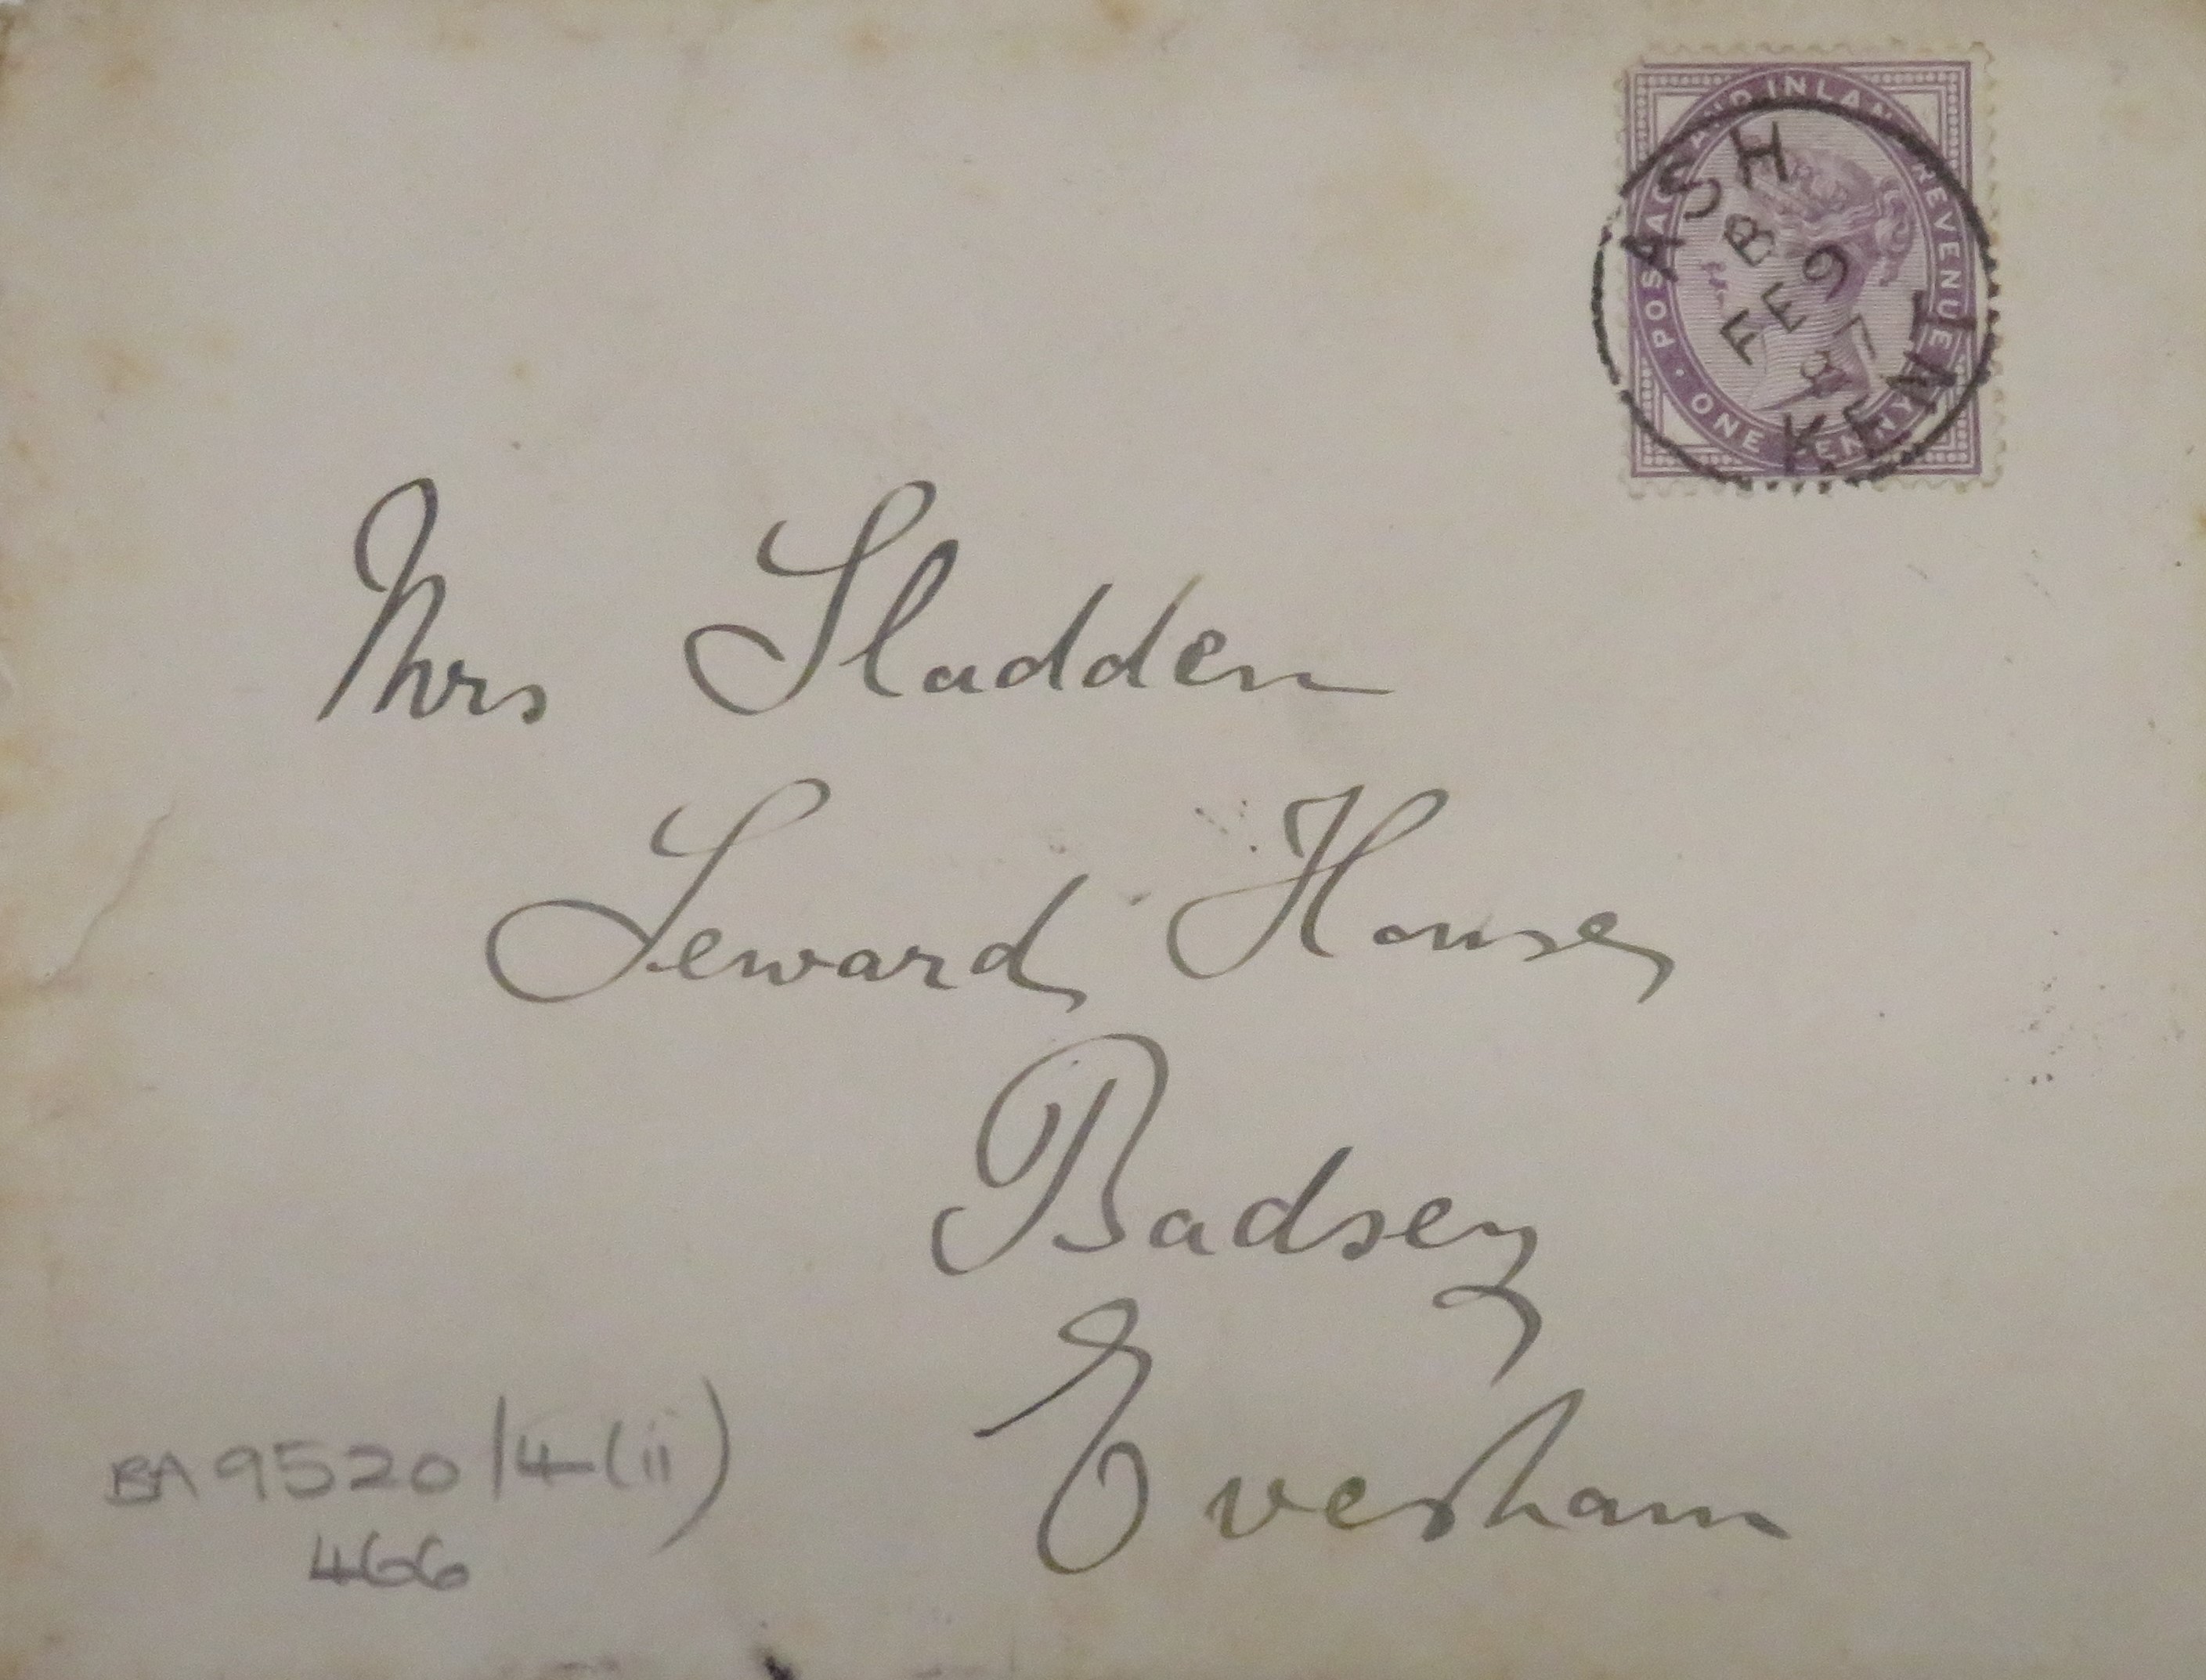 POSTAGE AND INLAND REVENUE
ONE PENNY
ASH
B
FE 9
KENT
Mrs Sladden
Seward House
Badsey
Evesham
BA 9520/4(ii)
466